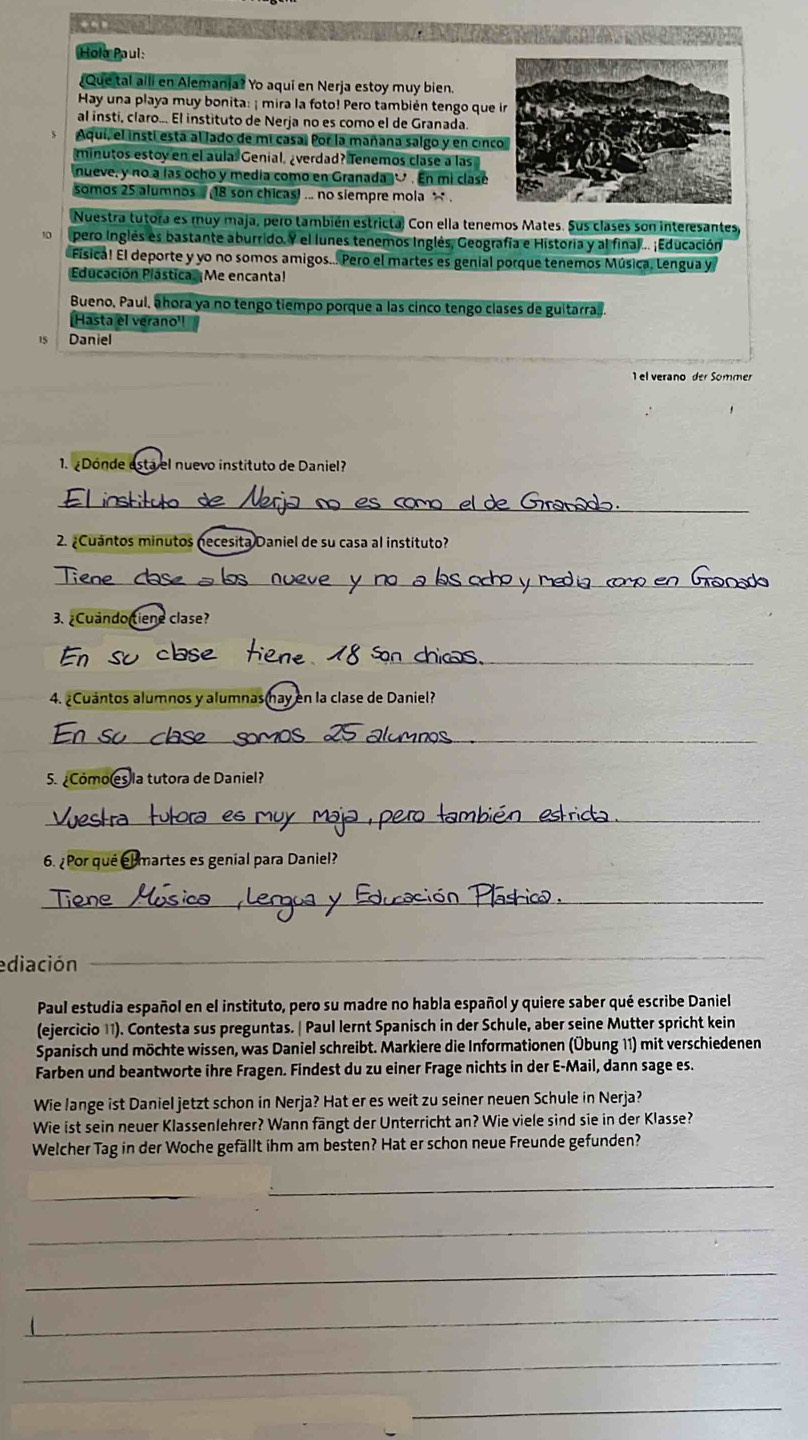 Hola Paul:
¿Qué tal allí en Alemania? Yo aquí en Nerja estoy muy bien.
Hay una playa muy bonita: ¡ mira la foto! Pero también tengo que ir
al insti, claro... El instituto de Nerja no es como el de Granada.
5 Aquí, el insti está al lado de mi casa. Por la mañana salgo y en cinco
minutos estoy en el aula. Genial, ¿verdad? Tenemos clase a las
nueve, y no a las ocho y media como en Granada. En mi clase
somos 25 alumnos ¡18 son chicas! ... no siempre mola
Nuestra tutora es muy maja, pero también estricta. Con ella tenemos Mates. Sus clases son interesantes,
10 pero Inglés es bastante aburrido. Y el lunes tenemos Inglés, Geografía e Historia y al final... ¡Educación
Física! El deporte y yo no somos amigos... Pero el martes es genial porque tenemos Música, Lengua y
Educación Plástica. ¡Me encanta!
Bueno, Paul, ahora ya no tengo tiempo porque a las cinco tengo clases de guitarra...
¡Hasta el verano¹!
15 Daniel
1 el verano der Sommer
1. ¿Dónde está el nuevo instituto de Daniel?
El instituto de Nerja no es como el de Granada.
2. ¿Cuántos minutos necesita Daniel de su casa al instituto?
Tiene clase a las nueve y no a las ocho y media como en Granada
3. ¿Cuándo tiene clase?
En su clase tiene 18 son chicas.
4. ¿Cuántos alumnos y alumnas hay en la clase de Daniel?
En su clase somos 25 alumnos.
5. ¿Cómo es la tutora de Daniel?
Vuestra tutora es muy maja, pero también estricta.
6. ¿Por qué el martes es genial para Daniel?
Tiene Música, Lengua y Educación Plástica.
ediación
Paul estudia español en el instituto, pero su madre no habla español y quiere saber qué escribe Daniel
(ejercicio 11). Contesta sus preguntas. | Paul lernt Spanisch in der Schule, aber seine Mutter spricht kein
Spanisch und möchte wissen, was Daniel schreibt. Markiere die Informationen (Übung 11) mit verschiedenen
Farben und beantworte ihre Fragen. Findest du zu einer Frage nichts in der E-Mail, dann sage es.
Wie lange ist Daniel jetzt schon in Nerja? Hat er es weit zu seiner neuen Schule in Nerja?
Wie ist sein neuer Klassenlehrer? Wann fängt der Unterricht an? Wie viele sind sie in der Klasse?
Welcher Tag in der Woche gefällt ihm am besten? Hat er schon neue Freunde gefunden?